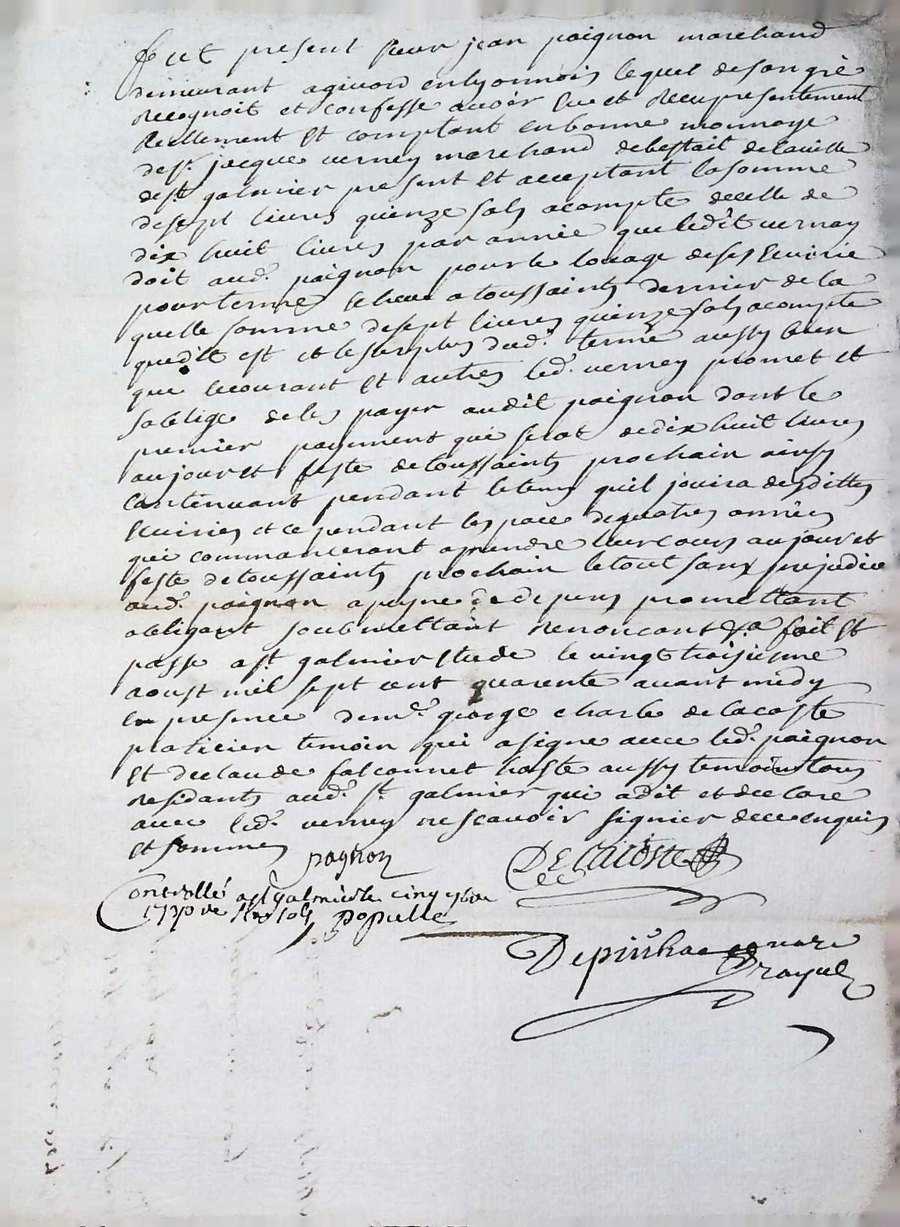 Fut present sieur jean paignon marchand
demeurant a givord en lyonnois lequel de son gré
recognoit et confesse avoir eu et receu presentement
reellement et comptant en bonne monnoye
de sr. jacque verney marchand de bestail de la ville
de st galmier present et acceptant la somme
de sept livres quinze sols acompte de celle de
dix huit livres par année que ledit vernay
doit aud. paignon pour le louage de ses Ecurie
pour terme echeu a toussaints dernier de la
quelle somme de sept livres quinze sols acompte
que dit est et le surplus dud. terme aussy bien
que le courant et autres led. verney promet et
soblige de les payer audit paignon dont le
premier payement qui serat de dix huit livres
au jour et feste de toussaints prochain ainsy
continuant pendant le tems quil jouira desdittes
Ecuiries et ce pendant lespace de quatre années
qui commanceront a prendre leur cours au jour et
feste de toussaints prochain le tout sans prejudice
aud. paignon a peyne de depens promettant
obligant soubmettant renoncant &a fait et
passe a st galmier etude le vingt troisiesme
aoust mil sept cent quarente avant midy
en presence de me. george charle de lacoste
praticien temoin qui a signe avec led. paignon
et de claude falconnet hoste aussy temoin tous
residants aud. st galmier qui a dit et declare
avec led. verney ne scavoir signier de ce enquis
et sommes
pagnon
DELACOSTE
Controllé a st galmier le cinq 7bre
1740 Populle